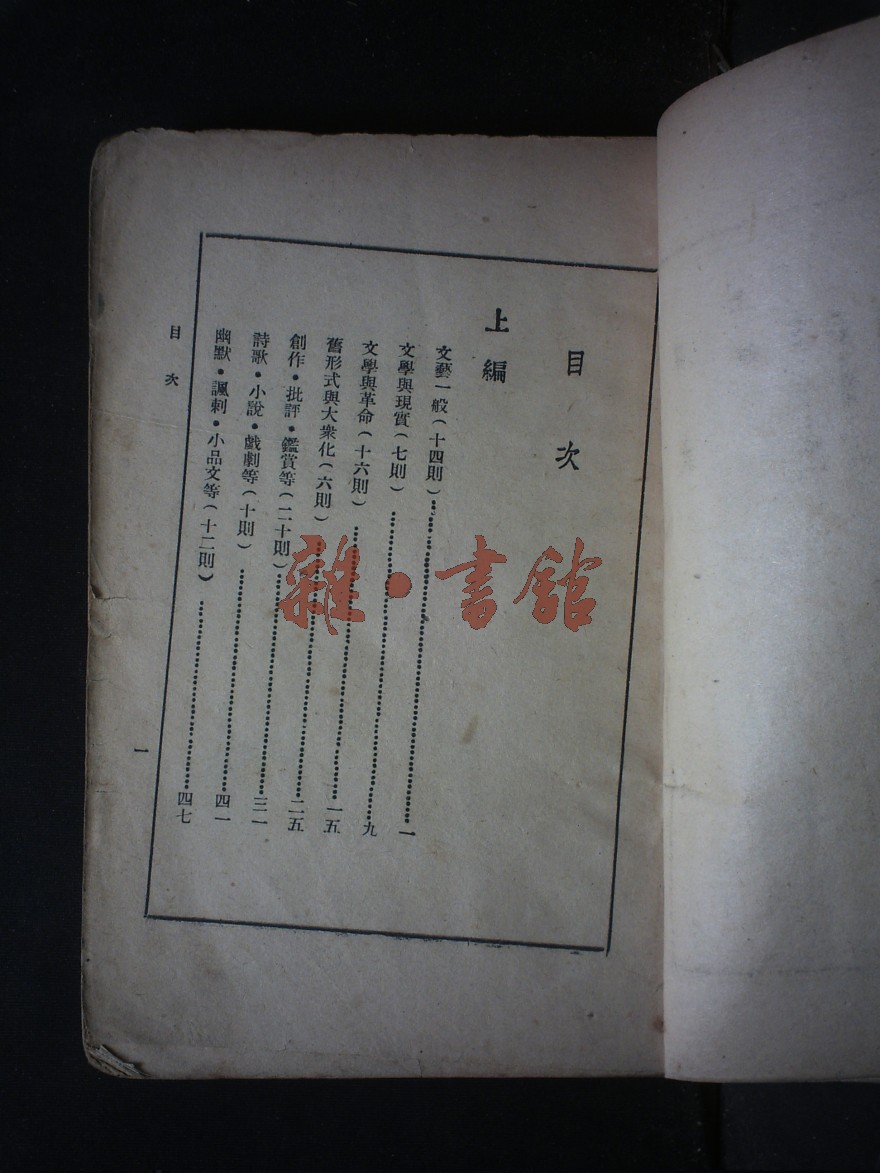 目次
上編
文藝一般(十四則)……一
文學與現實(七則)……九
文學與革命(十六則)……一五
舊形式與大衆化(六則)……二五
創作•批評•鑑賞等(二十則)……三一
詩歌•小說•戲劇等(十則)……四一
幽默•諷刺•小品文等(十二則)……四七
目次
一
雜•書館